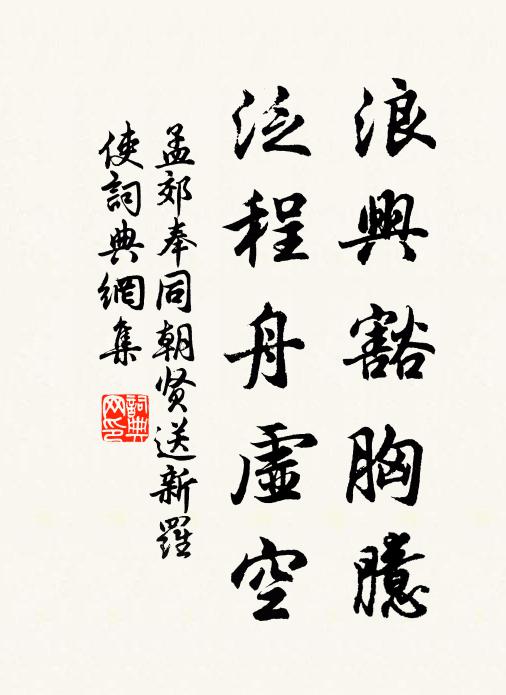 浪興豁胸臆
泛程舟虛空
孟郊奉同朝贤送新羅
使詞典網集
詞典网印